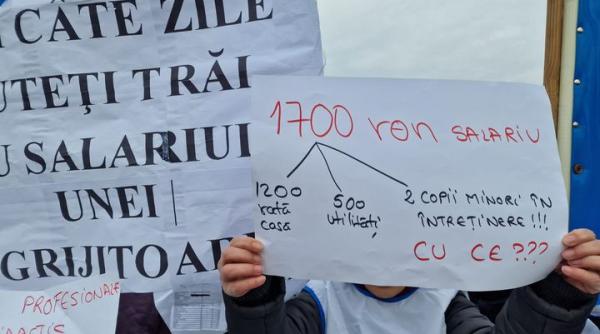 CÂTE ZILE
UTEȚI TRĂI
U SALARIUI
UNEI
GRIJITOARE
PROFESIONALE
1700 ron SALARIU
1200
rată
casă
500
utilități
2 COPII MINORI ÎN
ÎNTREȚINERE!!!
CU CE???